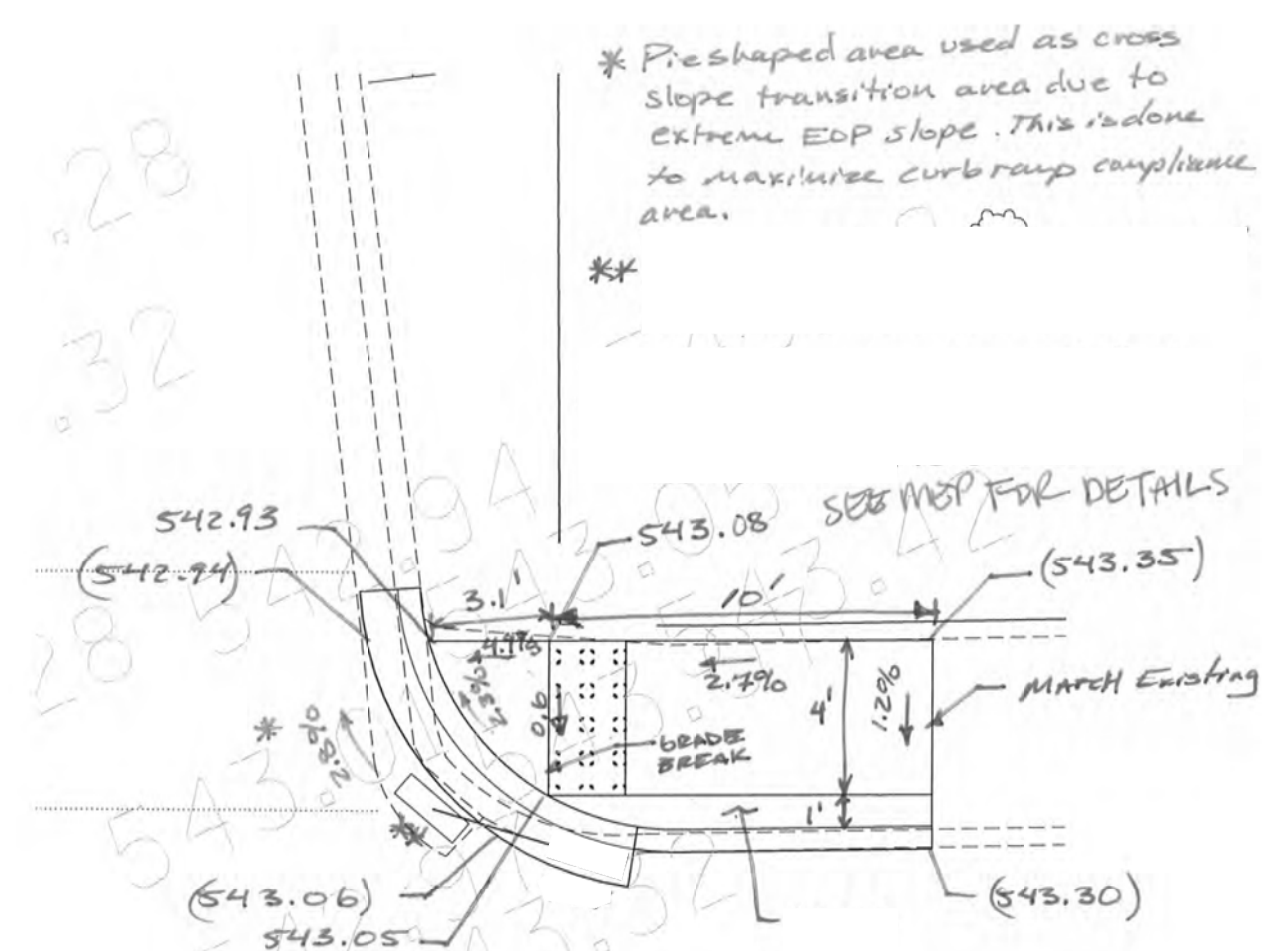 * Pie shaped area used as cross
slope transition area due to
extreme EOP slope. This is done
to maximize curb ramp compliance
area.
**
SEE MEP FOR DETAILS
.28
.32
542.93
(542.94)
543.08
(543.35)
3.1'
10'
4.9%
2.3%
2.7%
0.6
4'
1.2%
MATCH Existing
GRADE
BREAK
*
2.8%
**
1'
(543.06)
543.05
(543.30)